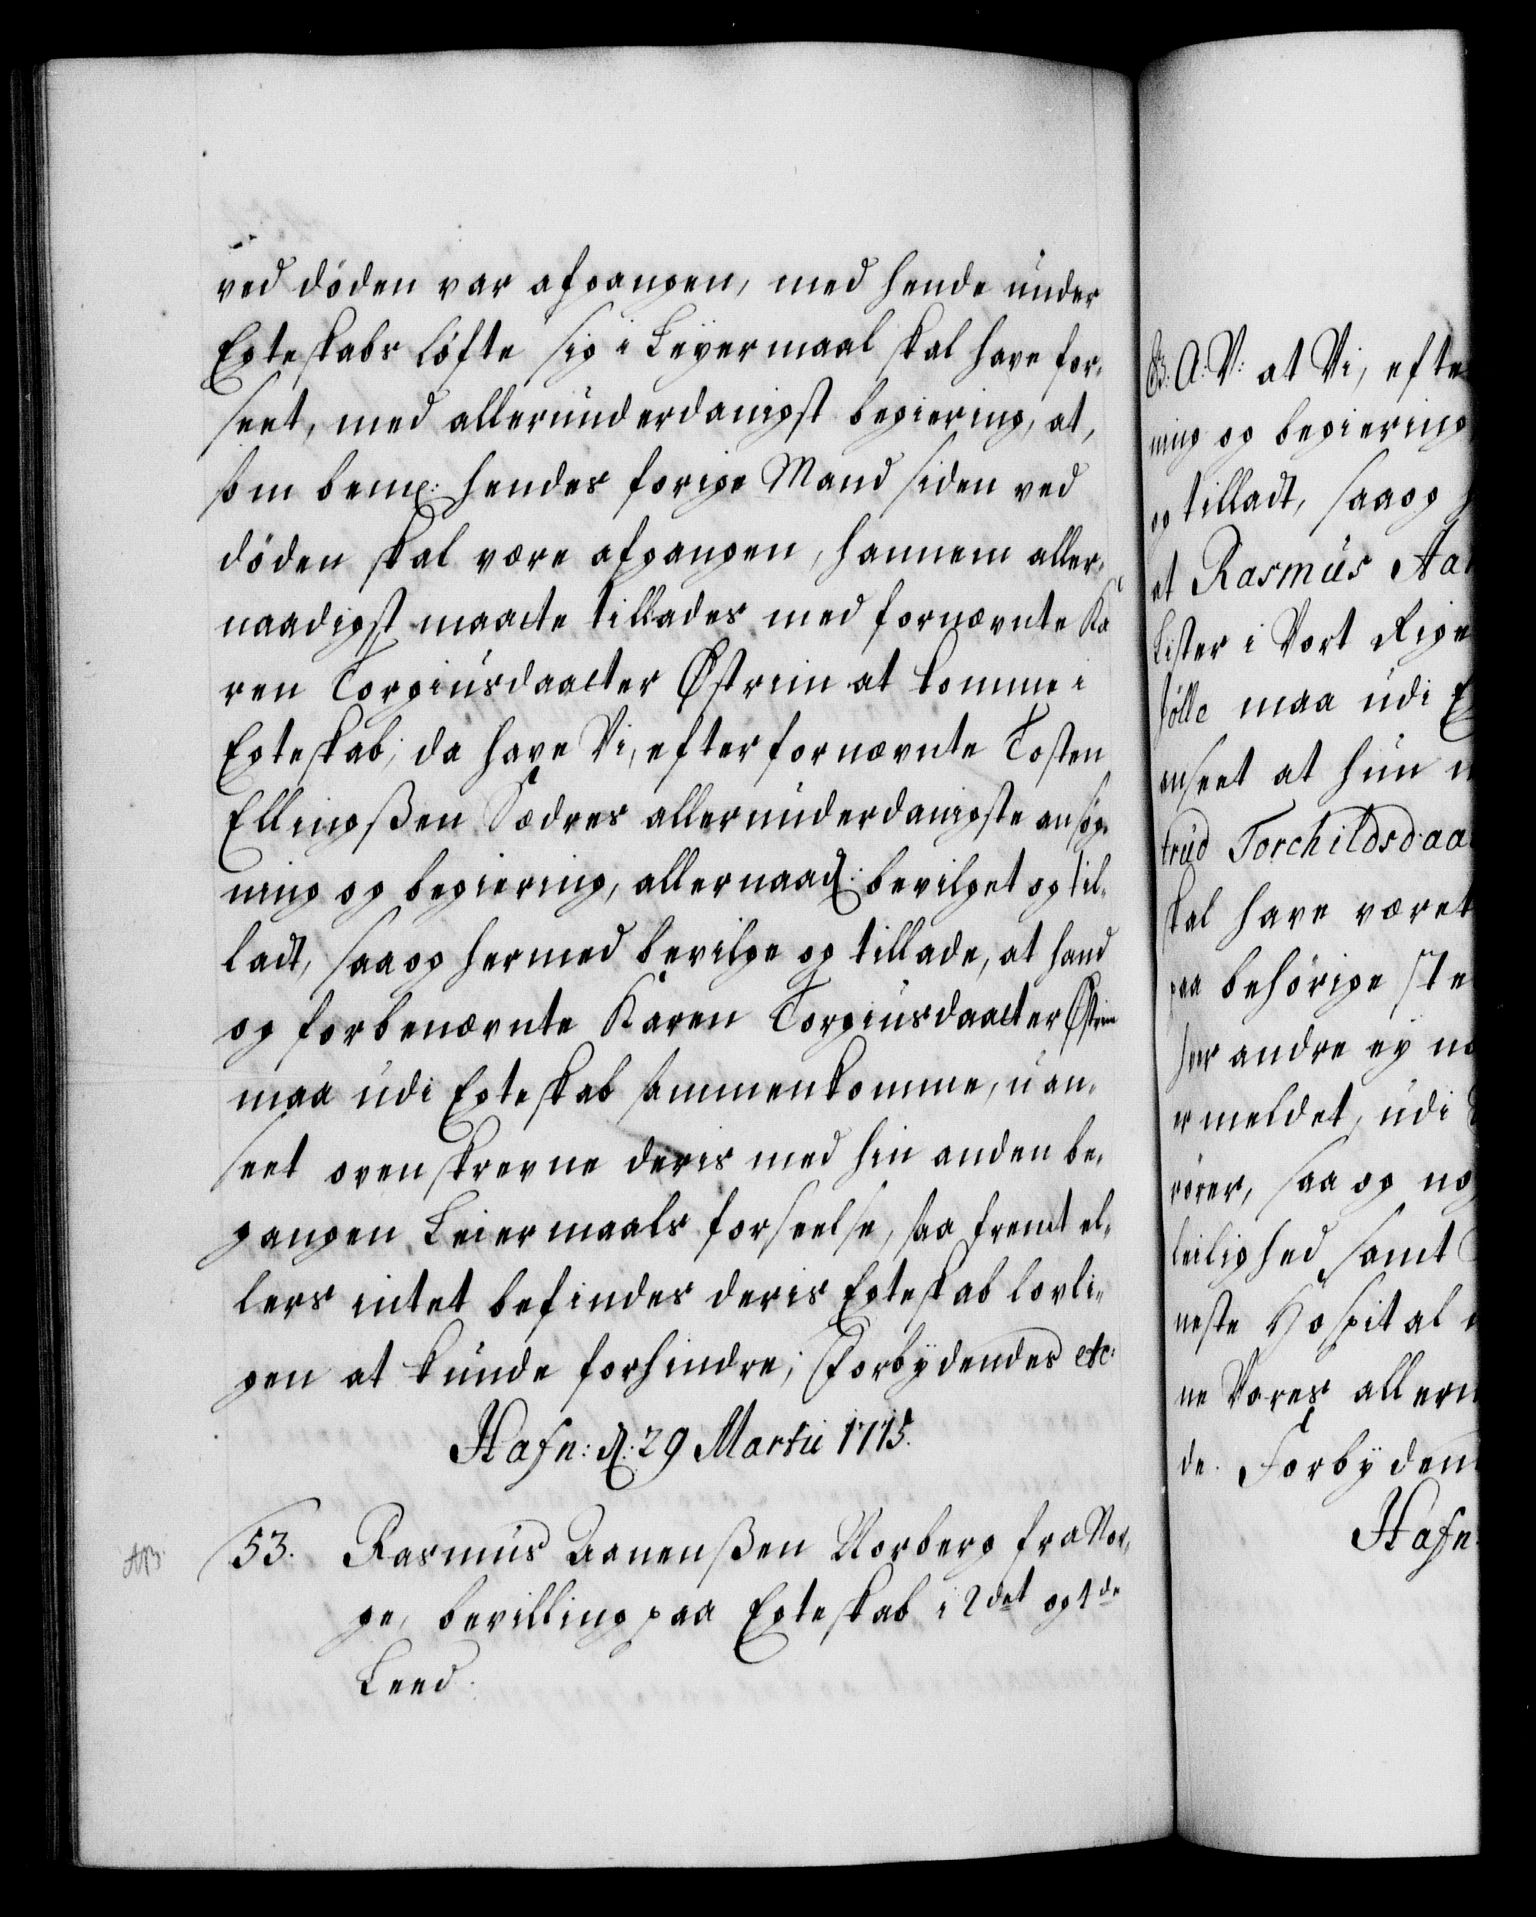 ved döden var afgangen, med hende under
Egteskabs Löfte sig i Leÿermaal skal have for-
seet, med allerunderdanigst begiering, at,
som bemte: hendes forige Mand siden ved
döden skal være afgangen, hannem aller-
naadigst maatte tillades med fornævnte Ka
ren Torgiusdaatter Østrim at komme i
Egteskab; da have Vi, efter fornævnte Tosten
Ellingsßen Sædres allerunderdanigste ansög-
ning og begiering, allernaad: bevilget og til-
ladt, saa og hermed bevilge og tillade, at hand
og forbenævnte Karen Torgiusdaatter Østrim
maa udi Egteskab sammenkomme, uan-
seet ovenskrevne deris med hin anden be-
gangen Leiermaals forseelse, saa fremt el-
lers intet befindes deris Egteskab lovli-
gen at kunde forhindre; Forbÿdendes etc:
Hafn: d: 29 Martii 1715.
53. Rasmus Aanenßen Norberg fra Nor-
ge, bevilling paa Egteskab i 2det og 1de
Leed.
B: A: V: at Vi, efte
ning og begiering
og tilladt, saa og
at Rasmus Aa
Lister i Vort Rige
maa udi
anseet at hun
trud Torchildsdaa
skal have været
paa behörige ste
her andre eÿ
ermeldet, udi
rörer, saa og no
leilighed samt
neste Hospital
ne Vores allern
de. Forbÿden
Hafn